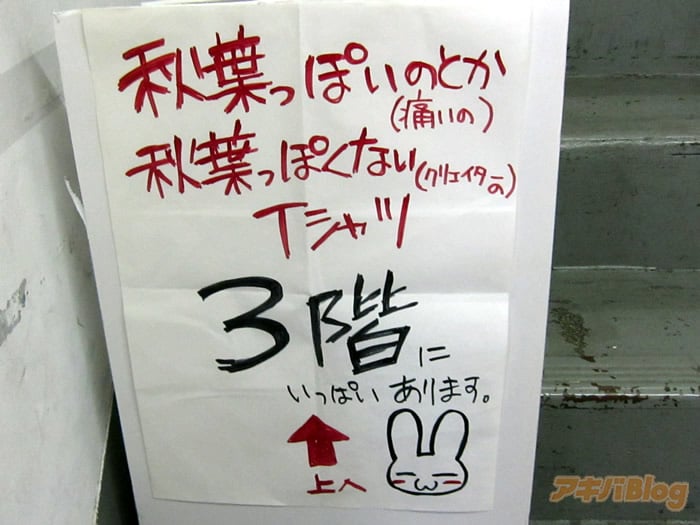 秋葉っぽいのとか
(痛いの)
秋葉っぽくない(クリエイターの)
Tシャツ
3階に
いっぱいあります。
上へ
アキバBlog